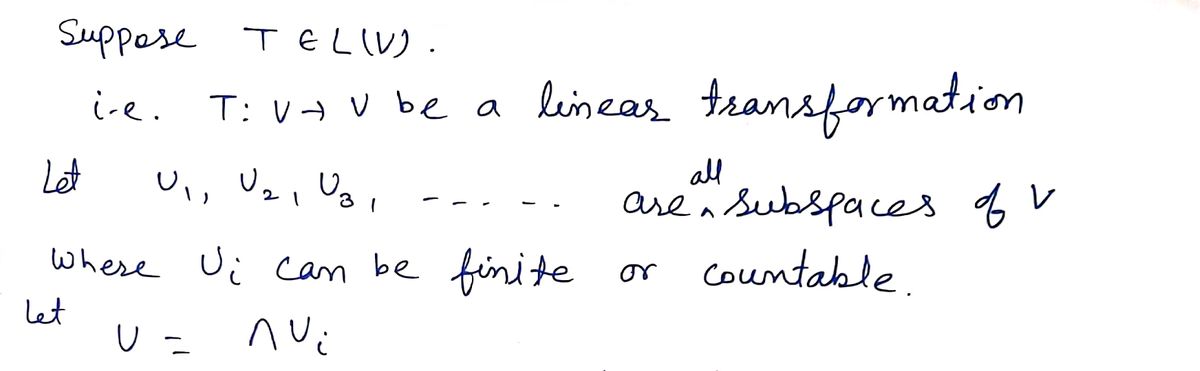 Suppose T ∈ L(V).
i.e. T: V → V be a linear transformation
Let U₁, U₂, U₃, ----- are all subspaces of V
where Ui can be finite or countable.
Let U = ∩Ui